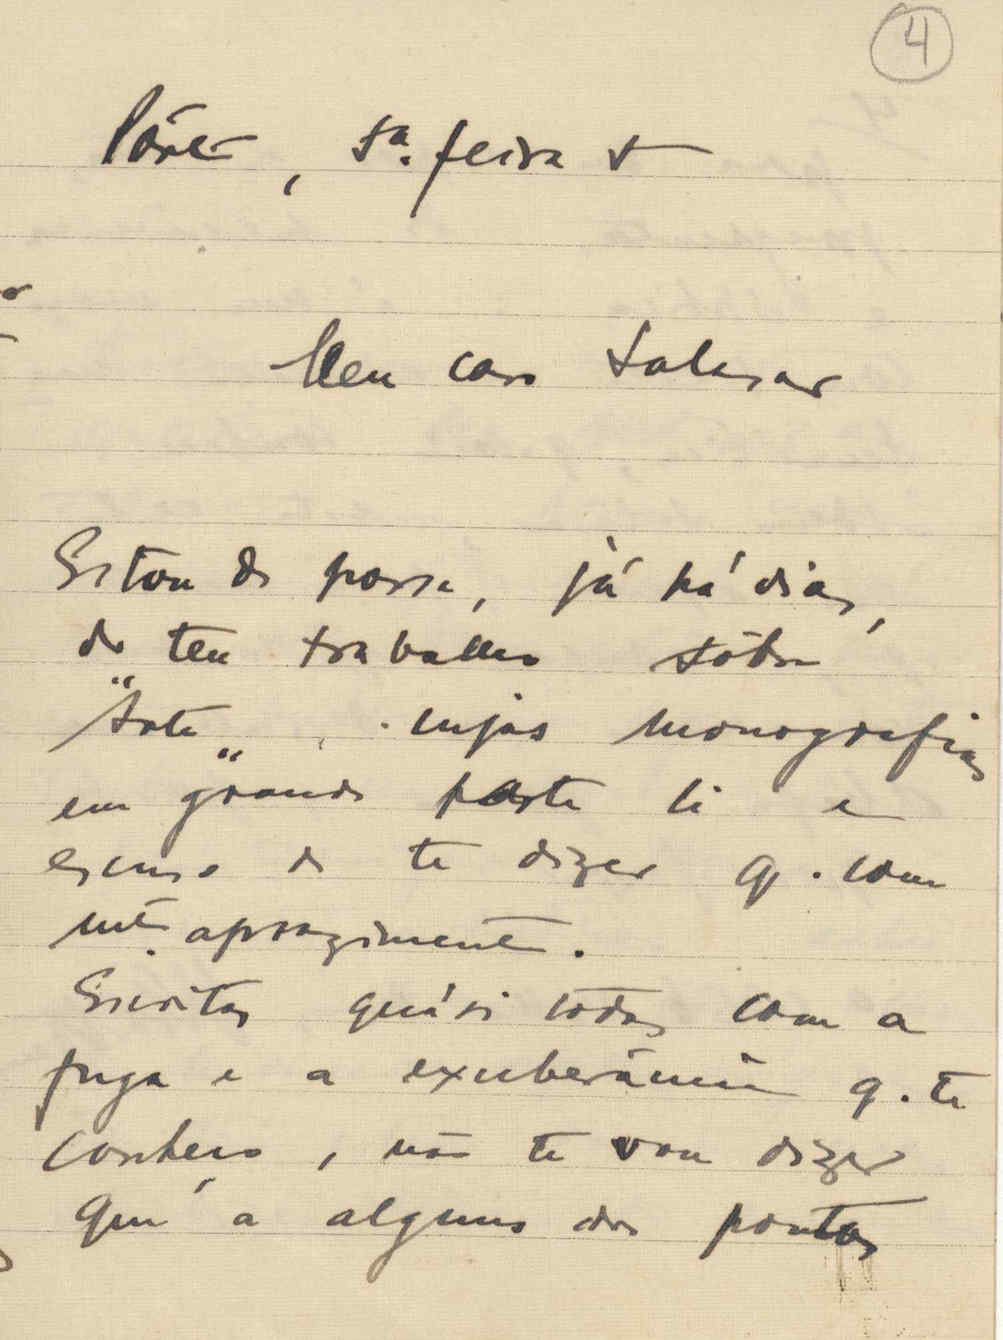 4
Pôrto, 5ª. feira 5
Meu caro Salazar
Estou de posse, já há dias,
do teu trabalho sôbre
"Arte", cujas monografias
em grande parte li e
escuso de te dizer q. com
mtº. aprazimento.
Escritas quási todas com a
fuga e a exuberância q. te
conheço, não te vou dizer
que á alguns dos pontos